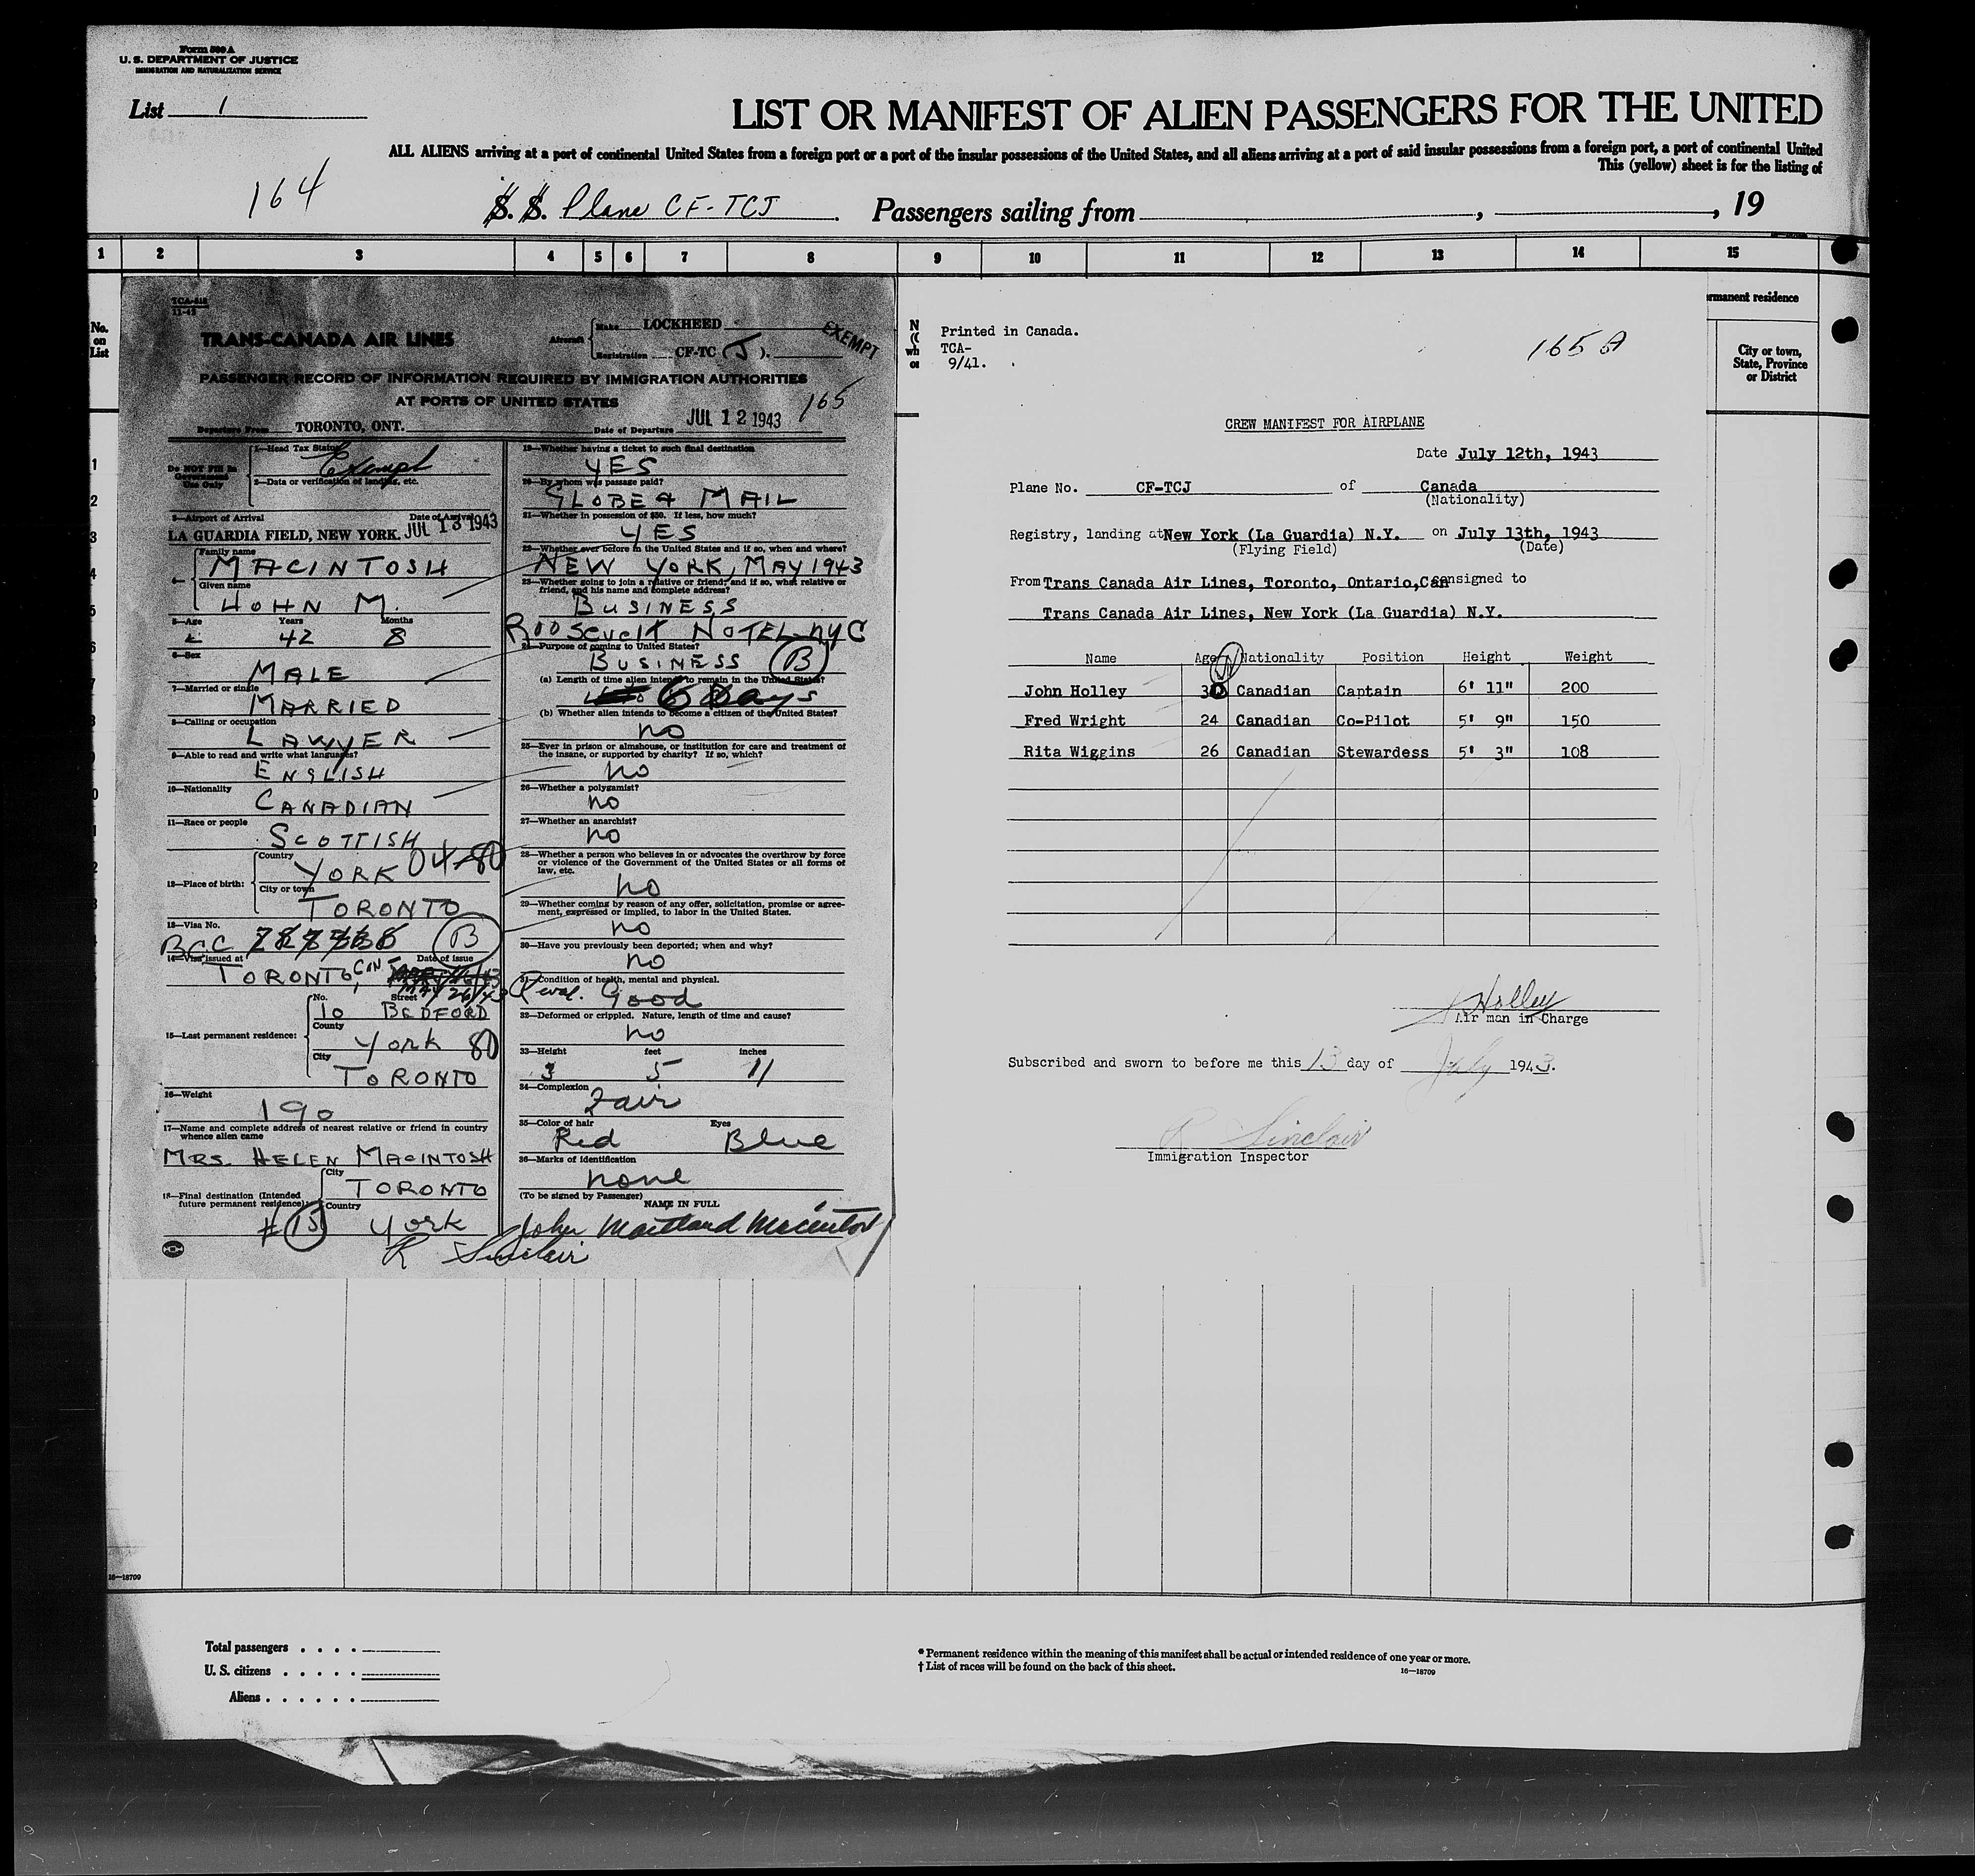 Form 500 A
U. S. DEPARTMENT OF JUSTICE
IMMIGRATION AND NATURALIZATION SERVICE
List 1
LIST OR MANIFEST OF ALIEN PASSENGERS FOR THE UNITED
ALL ALIENS arriving at a port of continental United States from a foreign port or a port of the insular possessions of the United States, and all aliens arriving at a port of said insular possessions from a foreign port, a port of continental United
This (yellow) sheet is for the listing of
164
S. S. Plane CF-TCJ Passengers sailing from , , 19
1 2 3 4 5 6 7 8 9 10 11 12 13 14 15
No. on List
TRANS-CANADA AIR LINES
Aircraft Make LOCKHEED
Registration CF-TC (J).
EXEMPT
PASSENGER RECORD OF INFORMATION REQUIRED BY IMMIGRATION AUTHORITIES
AT PORTS OF UNITED STATES
165
Departure From TORONTO, ONT. Date of Departure JUL 12 1943
Do NOT Fill In Government Use Only
1—Head Tax Status
Exempt
2—Data or verification of landing, etc.
3—Airport of Arrival Date of Arrival
LA GUARDIA FIELD, NEW YORK. JUL 13 1943
4— Family name
MACINTOSH
Given name
JOHN M.
5—Age Years Months
42 8
6—Sex
MALE
7—Married or single
MARRIED
8—Calling or occupation
LAWYER
9—Able to read and write what languages?
ENGLISH
10—Nationality
CANADIAN
11—Race or people
SCOTTISH
12—Place of birth: Country
YORK 04-80
City or town
TORONTO
13—Visa No.
BCC (B)
14—Visa issued at Date of issue
TORONTO, CAN
15—Last permanent residence: No. Street
10 BEDFORD
County
York 80
City
TORONTO
16—Weight
190
17—Name and complete address of nearest relative or friend in country
whence alien came
MRS. HELEN MACINTOSH
18—Final destination (Intended
future permanent residence): City
TORONTO
Country
# 15 York
R Sinclair
19—Whether having a ticket to such final destination
YES
20—By whom was passage paid?
GLOBE & MAIL
21—Whether in possession of $50. If less, how much?
YES
22—Whether ever before in the United States and if so, when and where?
NEW YORK, MAY 1943
23—Whether going to join a relative or friend; and if so, what relative or
friend, and his name and complete address?
BUSINESS
Roosevelt HOTEL NYC
24—Purpose of coming to United States?
BUSINESS (B)
(a) Length of time alien intends to remain in the United States?
6 Days
(b) Whether alien intends to become a citizen of the United States?
no
25—Ever in prison or almshouse, or institution for care and treatment of
the insane, or supported by charity? If so, which?
no
26—Whether a polygamist?
no
27—Whether an anarchist?
no
28—Whether a person who believes in or advocates the overthrow by force
or violence of the Government of the United States or all forms of
law, etc.
no
29—Whether coming by reason of any offer, solicitation, promise or agree-
ment, expressed or implied, to labor in the United States.
no
30—Have you previously been deported; when and why?
no
31—Condition of health, mental and physical.
Good
32—Deformed or crippled. Nature, length of time and cause?
no
33—Height feet inches
5 11
34—Complexion
Fair
35—Color of hair Eyes
Red Blue
36—Marks of identification
none
(To be signed by Passenger)
NAME IN FULL
John Maitland Macintosh
Printed in Canada.
TCA-
9/41.
165 A
CREW MANIFEST FOR AIRPLANE
Date July 12th, 1943
Plane No. CF-TCJ of Canada
(Nationality)
Registry, landing at New York (La Guardia) N.Y. on July 13th, 1943
(Flying Field) (Date)
From Trans Canada Air Lines, Toronto, Ontario, Can consigned to
Trans Canada Air Lines, New York (La Guardia) N.Y.
Name Age Nationality Position Height Weight
John Holley 30 Canadian Captain 6' 11" 200
Fred Wright 24 Canadian Co-Pilot 5' 9" 150
Rita Wiggins 26 Canadian Stewardess 5' 3" 108
J Holley
Air man in Charge
Subscribed and sworn to before me this 13 day of July 1943.
R Sinclair
Immigration Inspector
rmanent residence
City or town,
State, Province
or District
16—18709
Total passengers . . . .
U. S. citizens . . . . .
Aliens . . . . . .
* Permanent residence within the meaning of this manifest shall be actual or intended residence of one year or more.
† List of races will be found on the back of this sheet.
16—18709